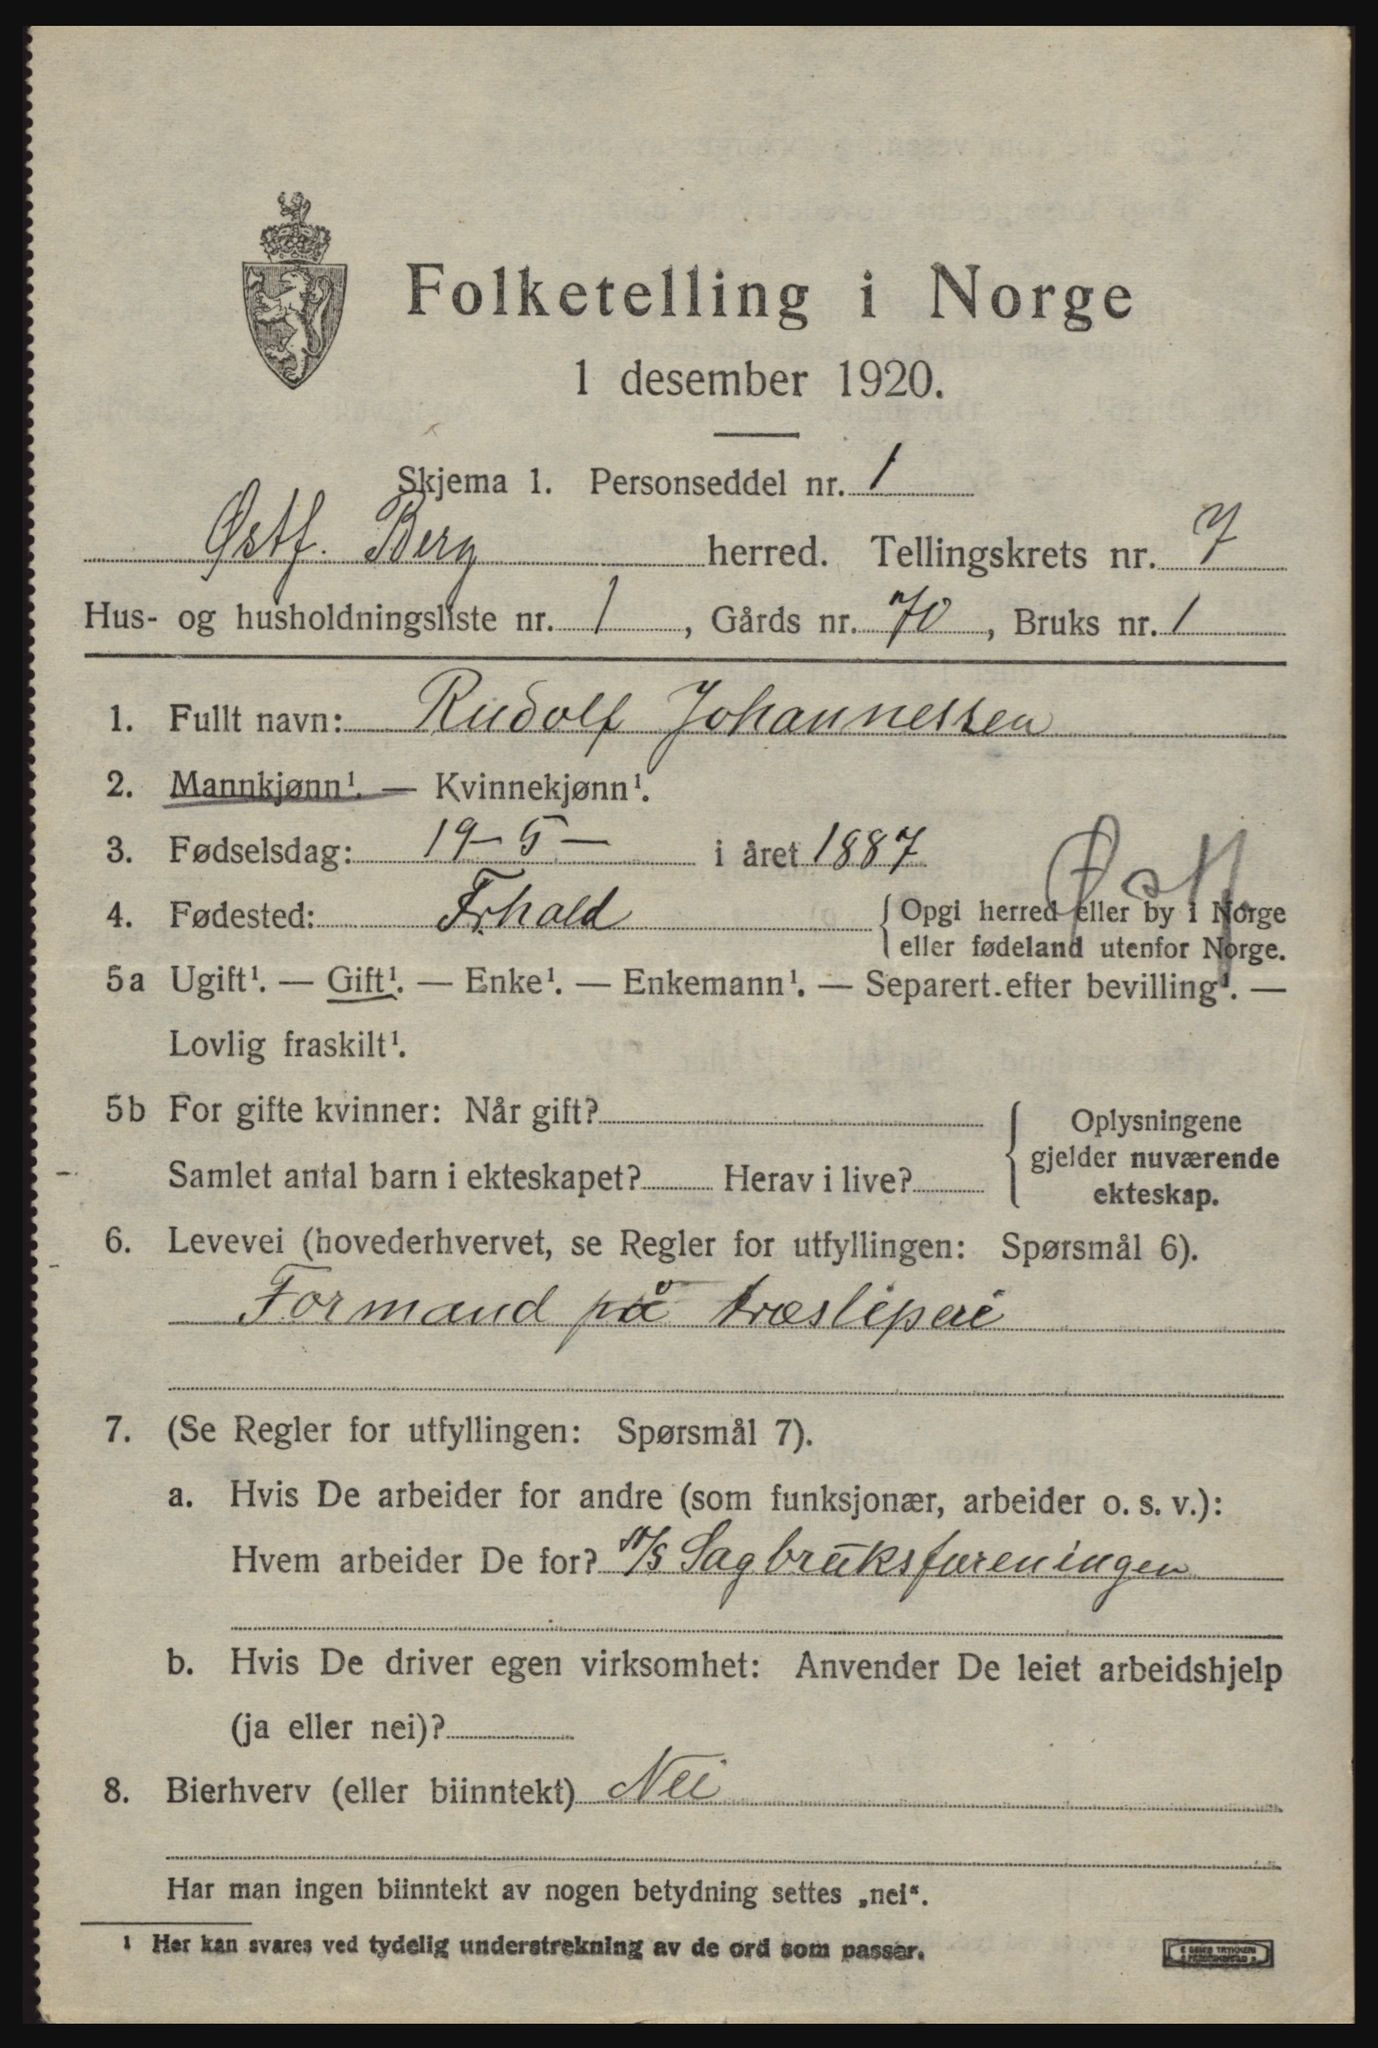 Folketelling i Norge
1 desember 1920.
Skjema 1. Personseddel nr. 1
Østf. Berg herred. Tellingskrets nr. 7
Hus- og husholdningsliste nr. 1, Gårds nr. 70, Bruks nr. 1
1. Fullt navn: Rudolf Johannessen
2. Mannkjønn¹. — Kvinnekjønn¹.
3. Fødselsdag: 19-5- i året 1887
4. Fødested: Frhald { Opgi herred eller by i Norge
eller fødeland utenfor Norge.
Østf.
5a Ugift¹. — Gift¹. — Enke¹. — Enkemann¹. — Separert efter bevilling¹. —
Lovlig fraskilt¹.
5b For gifte kvinner: Når gift?
Samlet antal barn i ekteskapet? Herav i live?
{ Oplysningene
gjelder nuværende
ekteskap.
6. Levevei (hovederhvervet, se Regler for utfyllingen: Spørsmål 6).
Formand på træsliperi
7. (Se Regler for utfyllingen: Spørsmål 7).
a. Hvis De arbeider for andre (som funksjonær, arbeider o. s. v.):
Hvem arbeider De for? A/S Sagbruksforeningen
b. Hvis De driver egen virksomhet: Anvender De leiet arbeidshjelp
(ja eller nei)?
8. Bierhverv (eller biinntekt) Nei
Har man ingen biinntekt av nogen betydning settes „nei“.
¹ Her kan svares ved tydelig understrekning av de ord som passer.